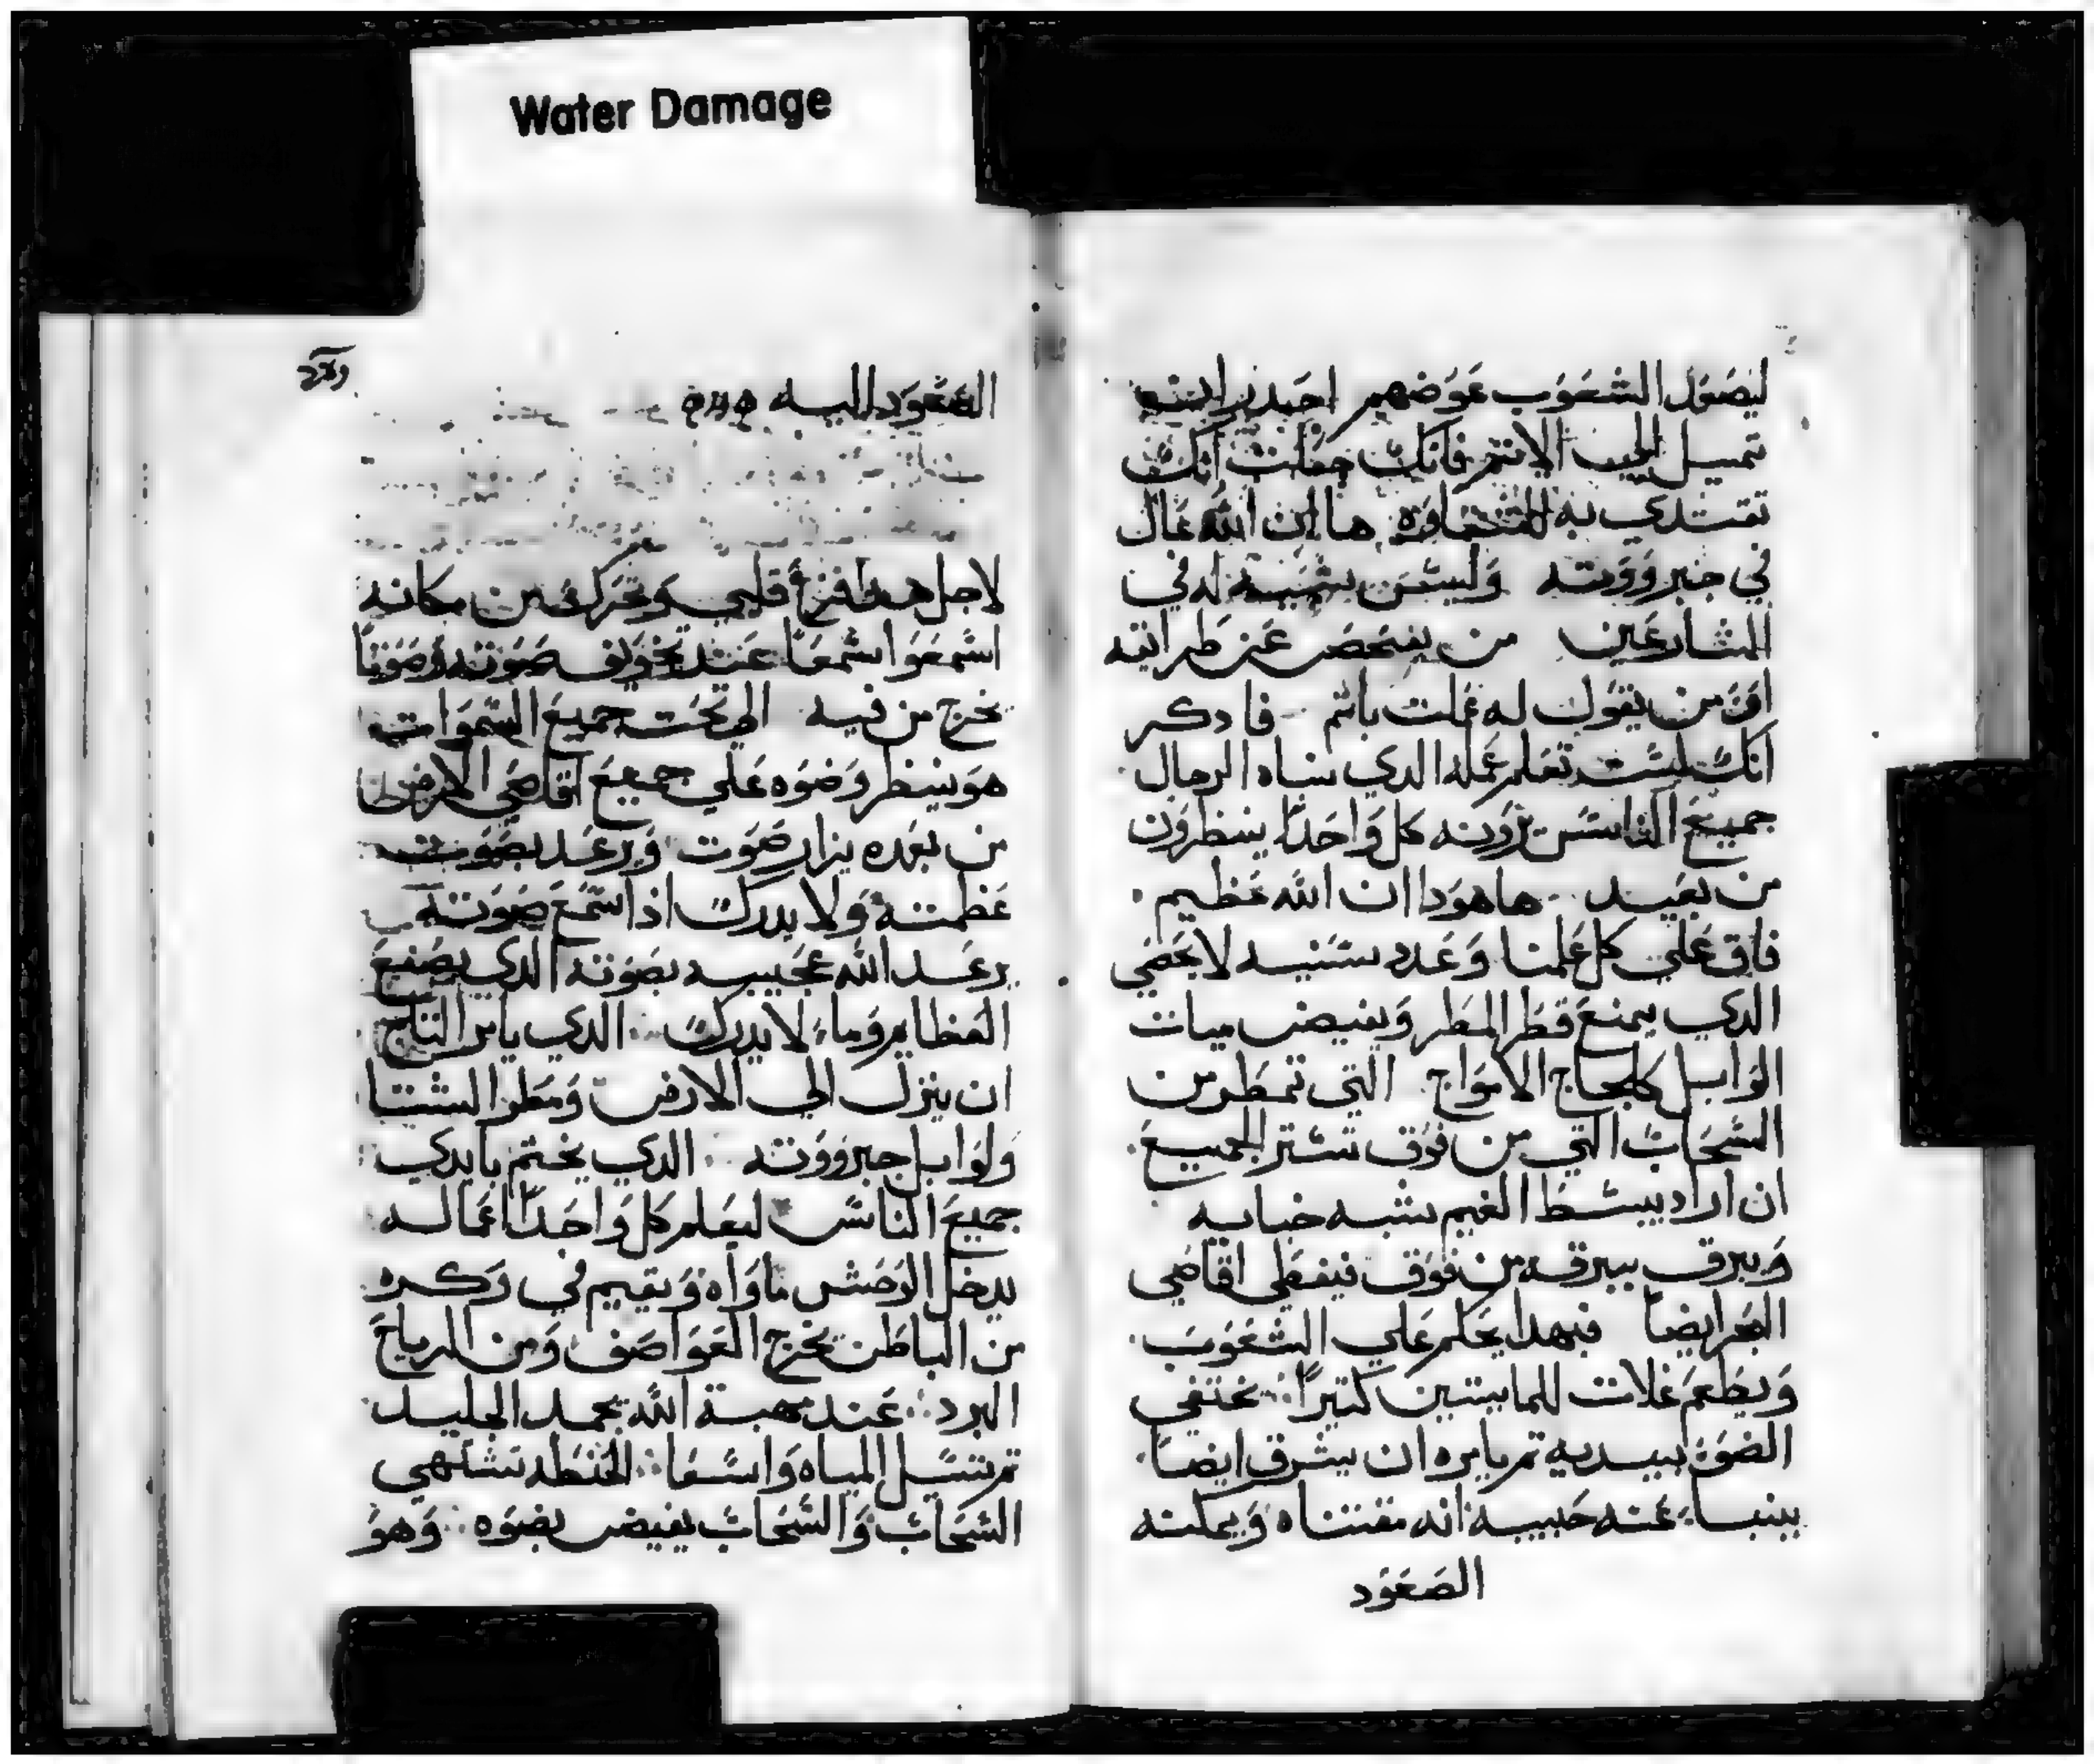 Water Damage
ليصعد الشعوب عوضهم احدر ان
تميل الى الاثم فانك جعلت انك
تقتدي به ها ان الله عال
في جبرووته وليس بشبيه له في
المشارعين من يفحص عن طرايقه
اوَ من يقول له عملت باثم فادكر
انك ليست تعلم عمله الدي سناه الرجال
جميع الناس يرونه كل واحدًا ينظرون
من بعيد ها هودا ان الله عظيم
فاق على كل علمنا وعدد سنيه لا يحصي
الدي يمنع قطر المطر ويفيض ميات
الوابل كلجاج الامواج التي تمطر من
السحاب التي من فوق تستر الجميع
ان اراد يبسط الغيم شبه خبايه
ويبرق ببرقه من فوق فيغطي اقاصي
البحر ايضا فبهدا يحكم علي الشعوب
ويطعم غلات للمايتين كتيرًا يختفي
الضوء بيديه تم يامره ان يشرق ايضا
ينبا عنه حبيبه انه مقتناه ويمكنه
الصعود
الصعود اليه
لاجل هدا فزع قلبي وتحرك من مكانه
اسمعوا سمعًا عند تخويف صوته وصوتًا
يخرج من فيه الي تحت جميع السموات
هو ينظر وضوه علي جميع اقاصي الارض
من بعده يزار صوت ويرعد بصوت
عظمته ولا يدرك اذا سمع صوته
يرعد الله عجيب بصوته الدي يصنع
العظايم وما لا يدرك الدي يامر التلج
ان ينزل الي الارض ومطر الشتا
ولوابل جبرووته الدي يختم بايدي
جميع الناس ليعلم كل واحدًا اعماله
يدخل الوحش ماواه ويقيم في وكره
من الباطن تخرج العواصف ومن الرياح
البرد عند مهبة الله يجمد الجليد
تم يتسيل المياه واسعا الحنطه تشتهي
السحاب والسحاب يفيض بضوه وهو